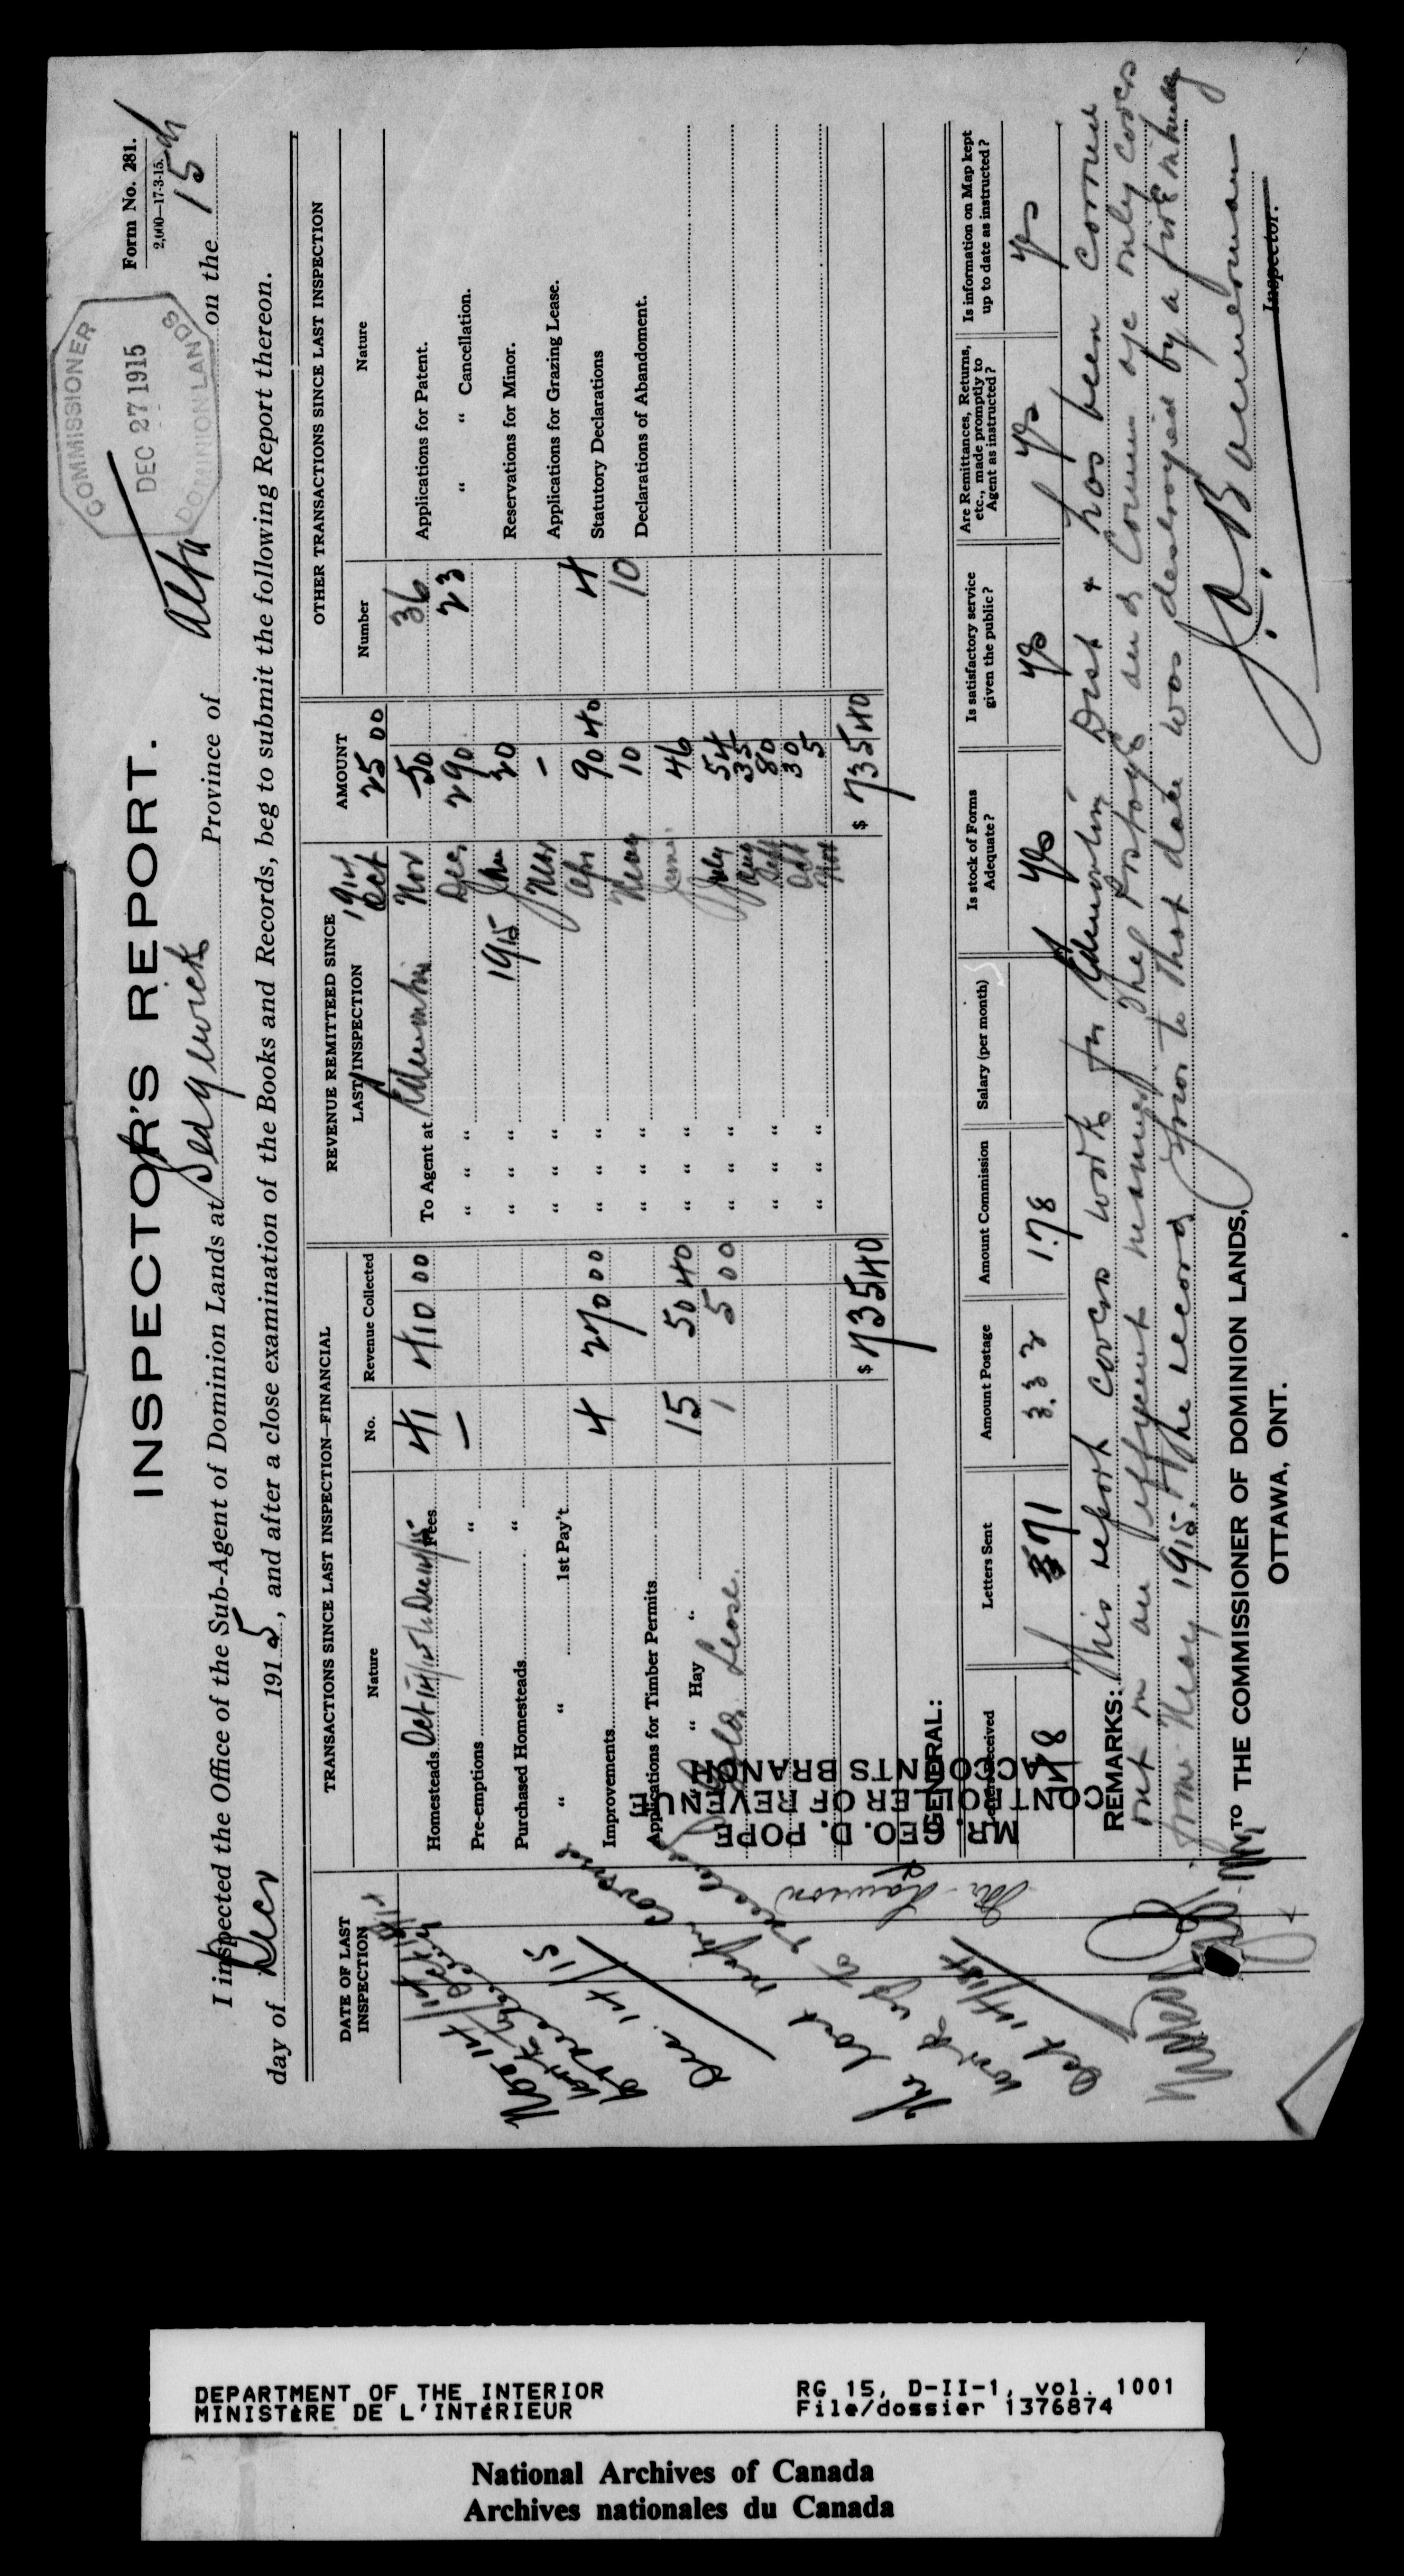 Form No. 281.
2,000—17-3-15.
COMMISSIONER
DEC 27 1915
DOMINION LANDS
INSPECTOR'S REPORT.
I inspected the Office of the Sub-Agent of Dominion Lands at Sedgewick Province of Alta on the 15th
day of Decr 1915, and after a close examination of the Books and Records, beg to submit the following Report thereon.
DATE OF LAST INSPECTION
TRANSACTIONS SINCE LAST INSPECTION—FINANCIAL
Nature No. Revenue Collected
Homesteads Oct 14/15 to Dec 14/15 Fees 41 410 00
Pre-emptions " —
Purchased Homesteads "
" " 1st Pay't
Improvements 4 270 00
Applications for Timber Permits 15 50 40
" " Hay " 1 5 00
Lease.
$ 735 40
REVENUE REMITTEED SINCE LAST INSPECTION AMOUNT
1914 Oct 25 00
To Agent at Edmonton Nov 50
" " " Dec 290
" " " 1915 Jan 20
" " " Mar —
" " " Apr 90 40
" " " May 10
" " " June 46
" " " July 54
Aug 35
" " " Sept 80
Oct 30
" " " Nov 5
$ 735 40
OTHER TRANSACTIONS SINCE LAST INSPECTION
Number Nature
36 Applications for Patent.
23 " " Cancellation.
Reservations for Minor.
Applications for Grazing Lease.
4 Statutory Declarations
10 Declarations of Abandoment.
The last report covered
work up to
Oct 14/15
Dec. 14/15
Mr. Lawson
MR. GEO. D. POPE
CONTROLLER OF REVENUE
ACCOUNTS BRANCH
GENERAL:
Letters Received Letters Sent Amount Postage Amount Commission Salary (per month) Is stock of Forms Adequate? Is satisfactory service given the public? Are Remittances, Returns, etc., made promptly to Agent as instructed? Is information on Map kept up to date as instructed?
571 3.33 1.78 yes yes yes yes
REMARKS: This report covers work for Edmonton Dist & has been carried
out in an efficient manner. The Postage and Commn a/c only covers
from May 1915. The record prior to that date was destroyed by a fire
Inspector.
TO THE COMMISSIONER OF DOMINION LANDS,
OTTAWA, ONT.
DEPARTMENT OF THE INTERIOR
MINISTÈRE DE L'INTÉRIEUR
RG 15, D-II-1, vol. 1001
File/dossier 1376874
National Archives of Canada
Archives nationales du Canada